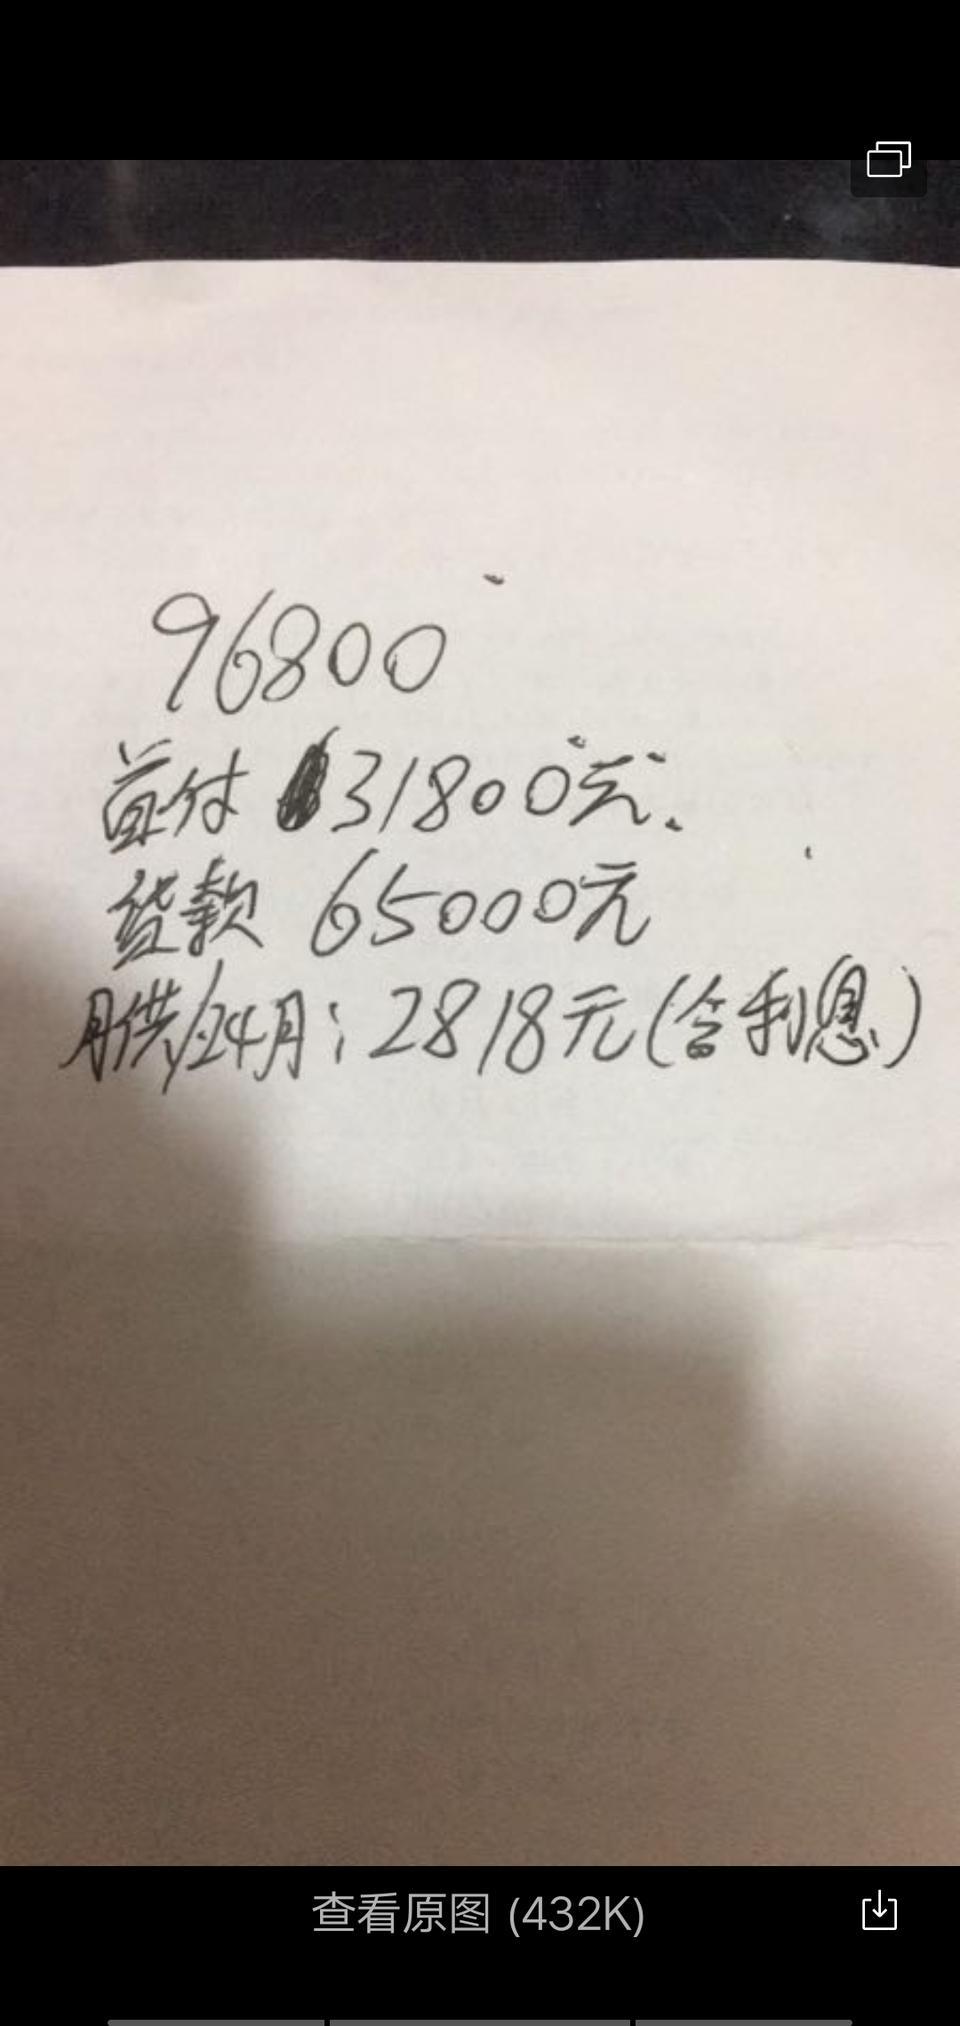 96800
首付 31800元.
贷款 65000元
月供/24月：2818元(含利息)
查看原图 (432K)